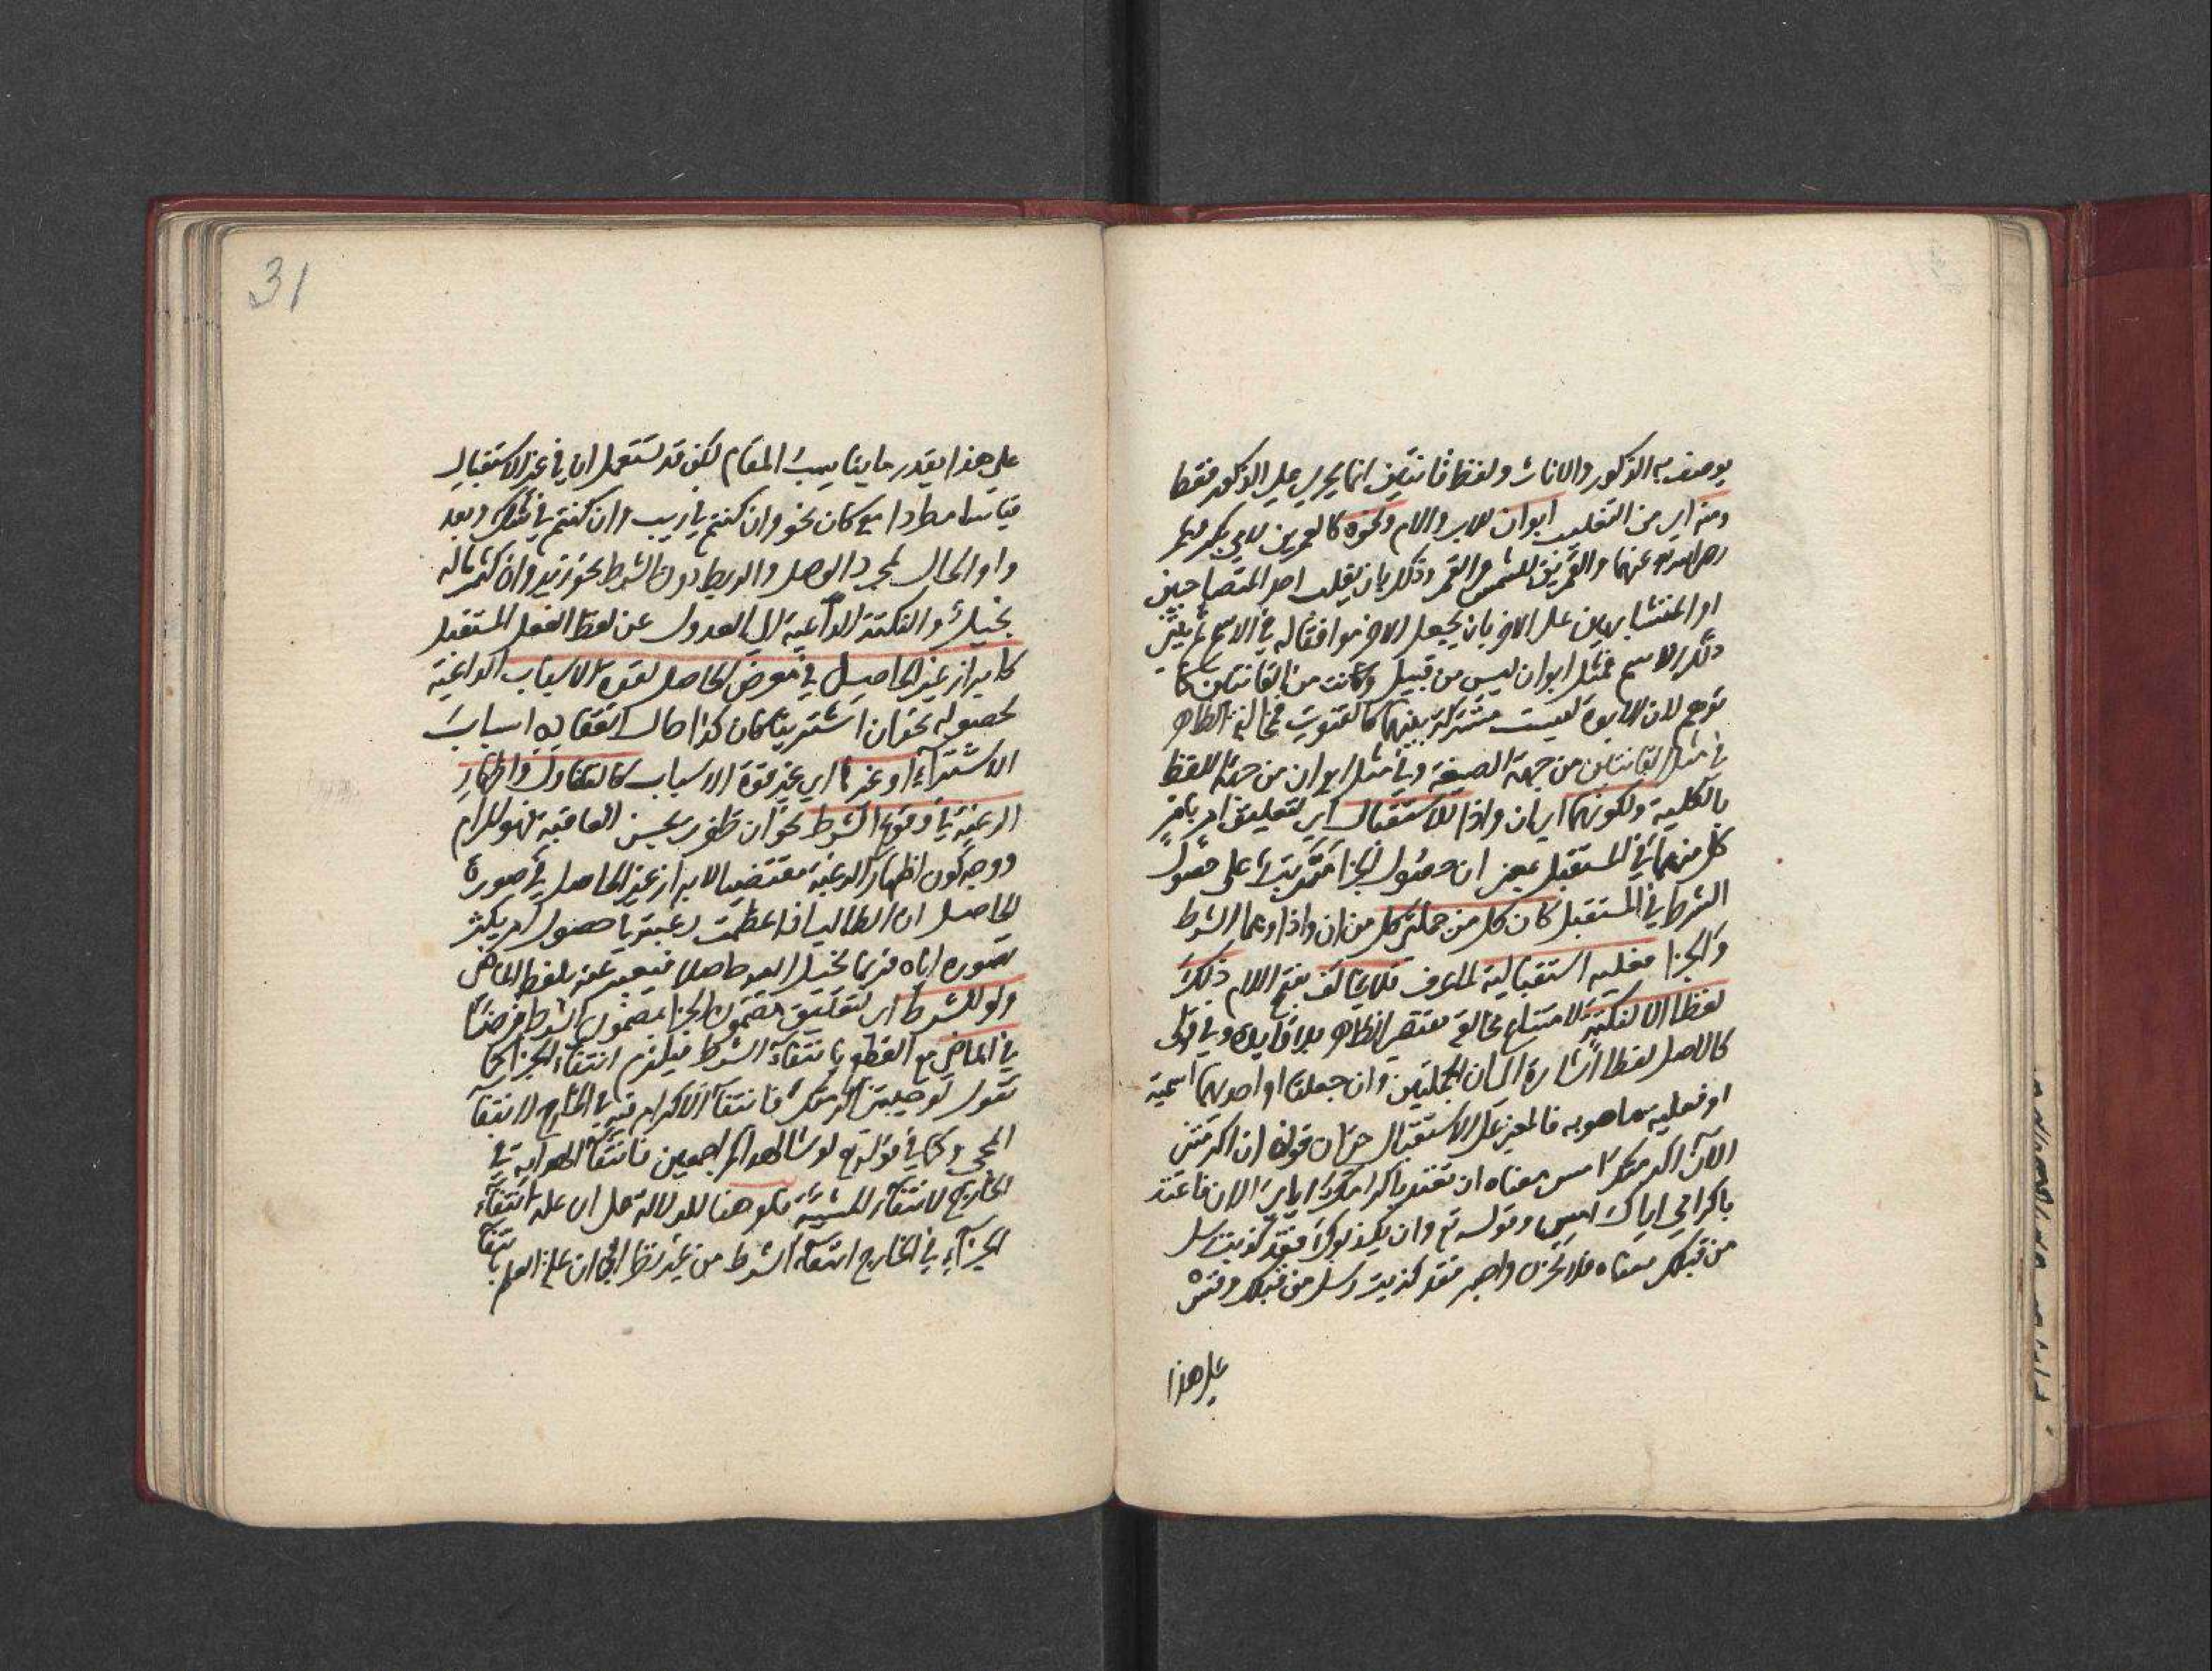 يوصف به الذكور والاناث ولفظ قانتين انما يجري علي الذكور فقط
ومنه اي من التغليب ابوان للاب والام ونحوه كالعمرين لابي بكر وعمر
رضي الله عنهما والقمرين للشمس والقمر وذلك بان يغلب احد المتصاحبين
او المتشابهين علي الاخر بان يجعل الاخر موافقا له في الاسم ثم يثني
ذلك الاسم فمثل ابوان ليس من قبيل وكانت من القانتين كما
توهم لان الابوة ليست مشتركة بينهما كالقنوت فمخالفة الظاهر
في مثل القانتين من جهة الصيغة وفي مثل ابوان من جهة اللفظ
بالكلية ولكونهما اي ان واذا للاستقبال اي لتعليق امر بامر
كل منهما في المستقبل بمعني ان حصول الجزا متمرتب علي حصول
الشرط في المستقبل كان كل من جملتي كل من ان واذا وهما الشرط
والجزا فعلية استقبالية لما عرف فلا يخالف بفتح اللام ذلك
لفظا الا لنكتة لامتناع مخالفة مقتضي الظاهر بلا فايدة وفي قوله
كالاصل لفظا اشارة الي ان الجملتين وان جعلتا او احديهما اسمية
او فعلية ماضوية فالمعني علي الاستقبال حتي ان قولنا ان اكرمتني
الآن اكرمتك امس معناه ان تعتد باكرامك اياي الان فاعتد
باكرامي اياك امس وقوله تع وان يكذبوك فقد كذبت رسل
من قبلك معناه فلا تحزن واصبر فقد كذبت رسل من قبلك وقس
علي هذا
31
علي هذا يقدر ما يناسب المقام لكن قد تستعمل ان في غير الاستقبال
قياسا مطردا مع كان نحو وان كنتم في ريب وان كنتم في شك وبعد
واو الحال لمجرد الوصل والربط دون الشرط نحو زيد وان كثر ماله
بخيل والنكتة الداعية الي العدول عن لفظ الفعل المستقبل
كابراز غير الحاصل في معرض الحاصل لقوة الاسباب الداعية
لحصوله نحو ان اشترينا كان كذا حال انعقاد اسباب
الاشتراء او غيرها اي غير قوة الاسباب كالتفاول واظهار
الرغبة في وقوع الشرط نحو ان ظفرت بحسن العاقبة فهو المرام
ووجه كون اظهار الرغبة مقتضيا لابراز غير الحاصل في صورة
الحاصل ان الطالب اذا عظمت رغبته في حصول امر يكثر
تصوره اياه فربما يخيل اليه حاصلا فيعبر عنه بلفظ الماضي
ولو للشرط اي لتعليق مضمون الجزا بمضمون الشرط فرضا
في الماضي مع القطع بانتفاء الشرط فيلزم انتفاء الجزا كما
تقول لو جيتني اكرمتك فانتفاء الاكرام فيه في الخارج لانتفاء
المجي وكما في قوله تع لو شاء لهداكم اجمعين فانتفاء الهداية في
الخارج لانتفاء المشية فلو هنا للدلالة علي ان علة انتفاء
الجزاء في الخارج انتفاء الشرط من غير نظر الي ان علة العلم بانتفا